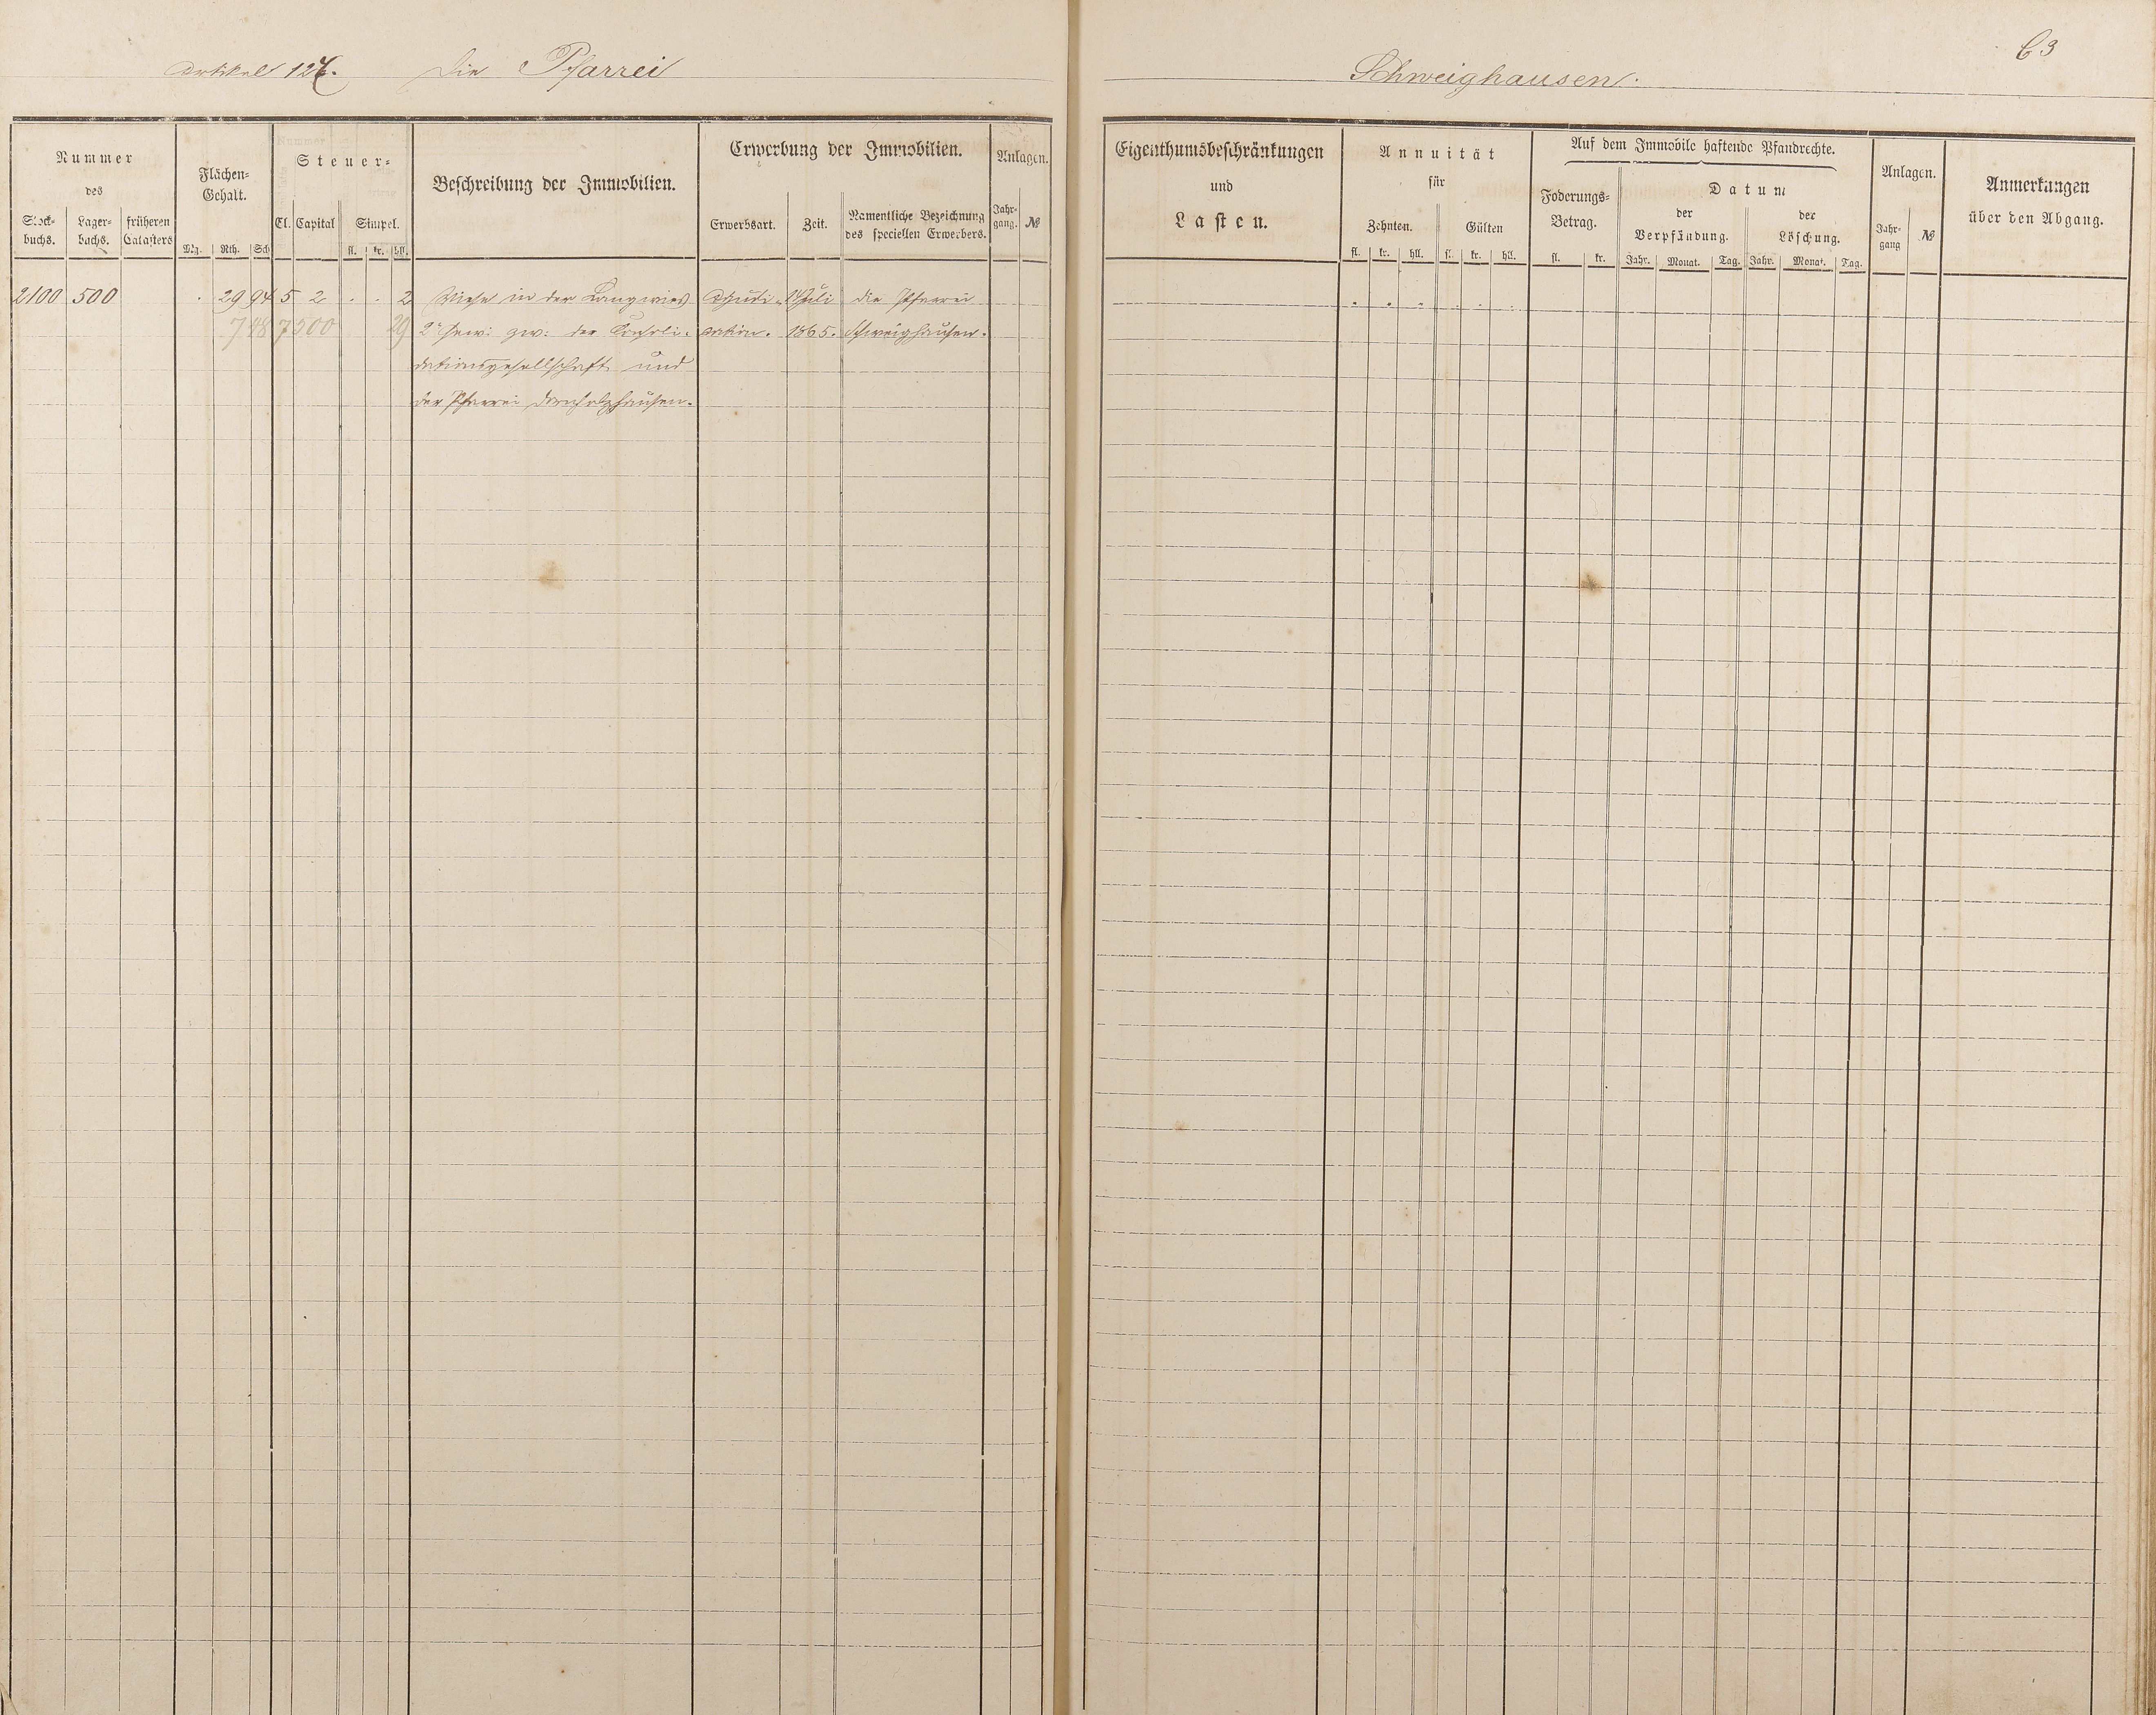 Artikel 127. Die Pfarrei
Schweighausen.
63
Nummer
des
Stock-
buchs.
Lager-
buchs.
früheren
Catasters
Flächen-
Gehalt.
Mg. Rth. Sch
Steuer-
Cl. Capital Simpel.
fl. kr. hll.
Beschreibung der Immobilien.
Erwerbung der Immobilien.
Erwerbsart. Zeit.
Namentliche Bezeichnung
des speciellen Erwerbers.
Anlagen.
Jahr-
gang. №
Eigenthumsbeschränkungen
und
Lasten.
Annuität
für
Zehnten. Gülten
fl. kr. hll. fl. kr. hll.
Auf dem Immobile haftende Pfandrechte.
Foderungs-
Betrag.
fl. kr.
Datum
der
Verpfändung.
der
Löschung.
Jahr. Monat. Tag. Jahr. Monat. Tag.
Anlagen.
Jahr-
gang №
Anmerkungen
über den Abgang.
2100 500 . 29 94 5 2 . . 2 Wiese in der Langwies Adjudi- Juli die Pfarrei
7 48 7500 29 2r Gew: zw: der Consoli- cation. 1865. Schweighausen.
dationsgesellschaft und
der Pfarrei Dornholzhausen.